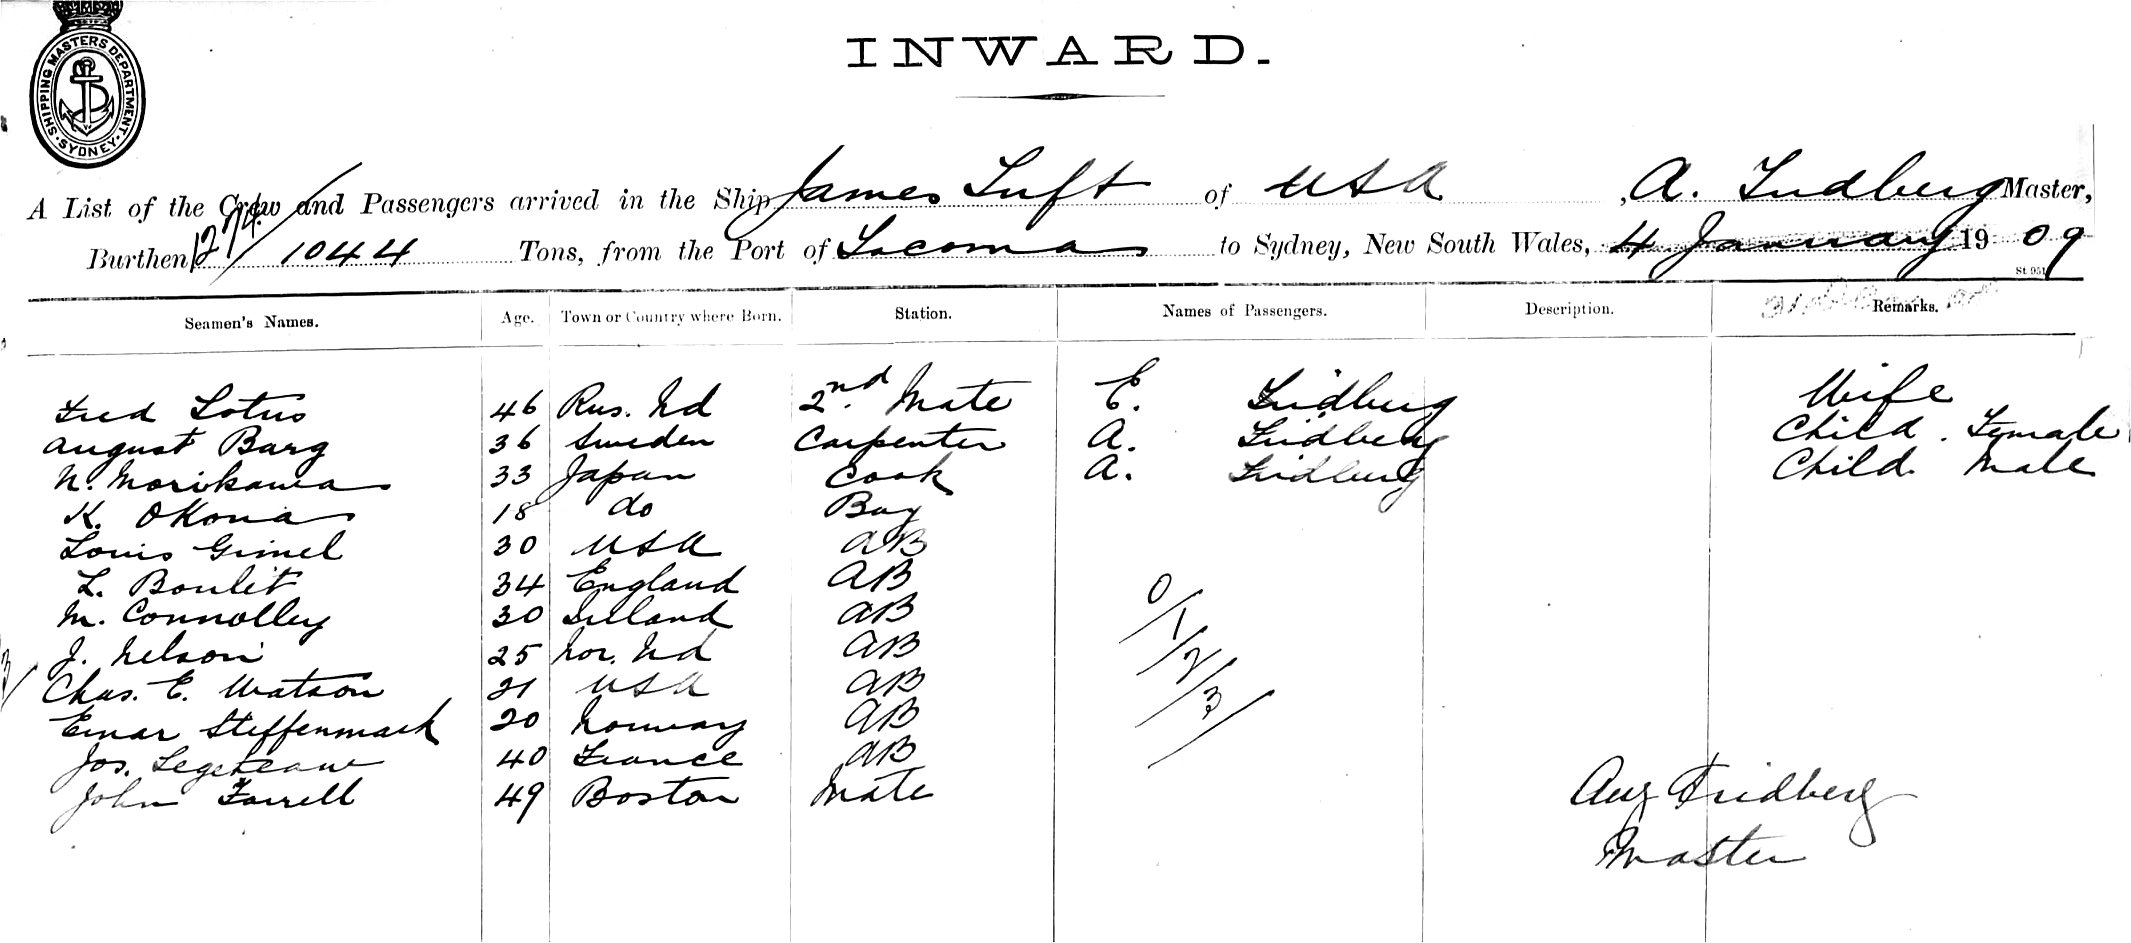 SHIPPING MASTERS DEPARTMENT
SYDNEY
INWARD.
A List of the Crew and Passengers arrived in the Ship James Tuft of USA, A. Fridberg Master,
12 74/ 1044
Burthen Tons, from the Port of Tacoma to Sydney, New South Wales, 4 January 1909
St 951
Seamen's Names. Age. Town or Country where Born. Station. Names of Passengers. Description. Remarks.
Fred Lotus 46 Rus. Nd 2nd. Mate E. Fridberg Wife
August Barg 36 Sweden Carpenter A. Fridberg Child. Female
N. Morikawa 33 Japan Cook A. Fridberg Child. Male
K. Okona 18 do Boy
Louis Gimel 30 USA AB
L. Boulit 34 England AB
M. Connolley 30 Ireland AB
J. Nelson 25 Nor. Nd AB
Chas. E. Watson 21 USA AB
Einar Steffenmark 20 Norway AB
Jos. 40 France AB
John Farrell 49 Boston Mate
0/1/2/3/
Aug Fridberg
Master